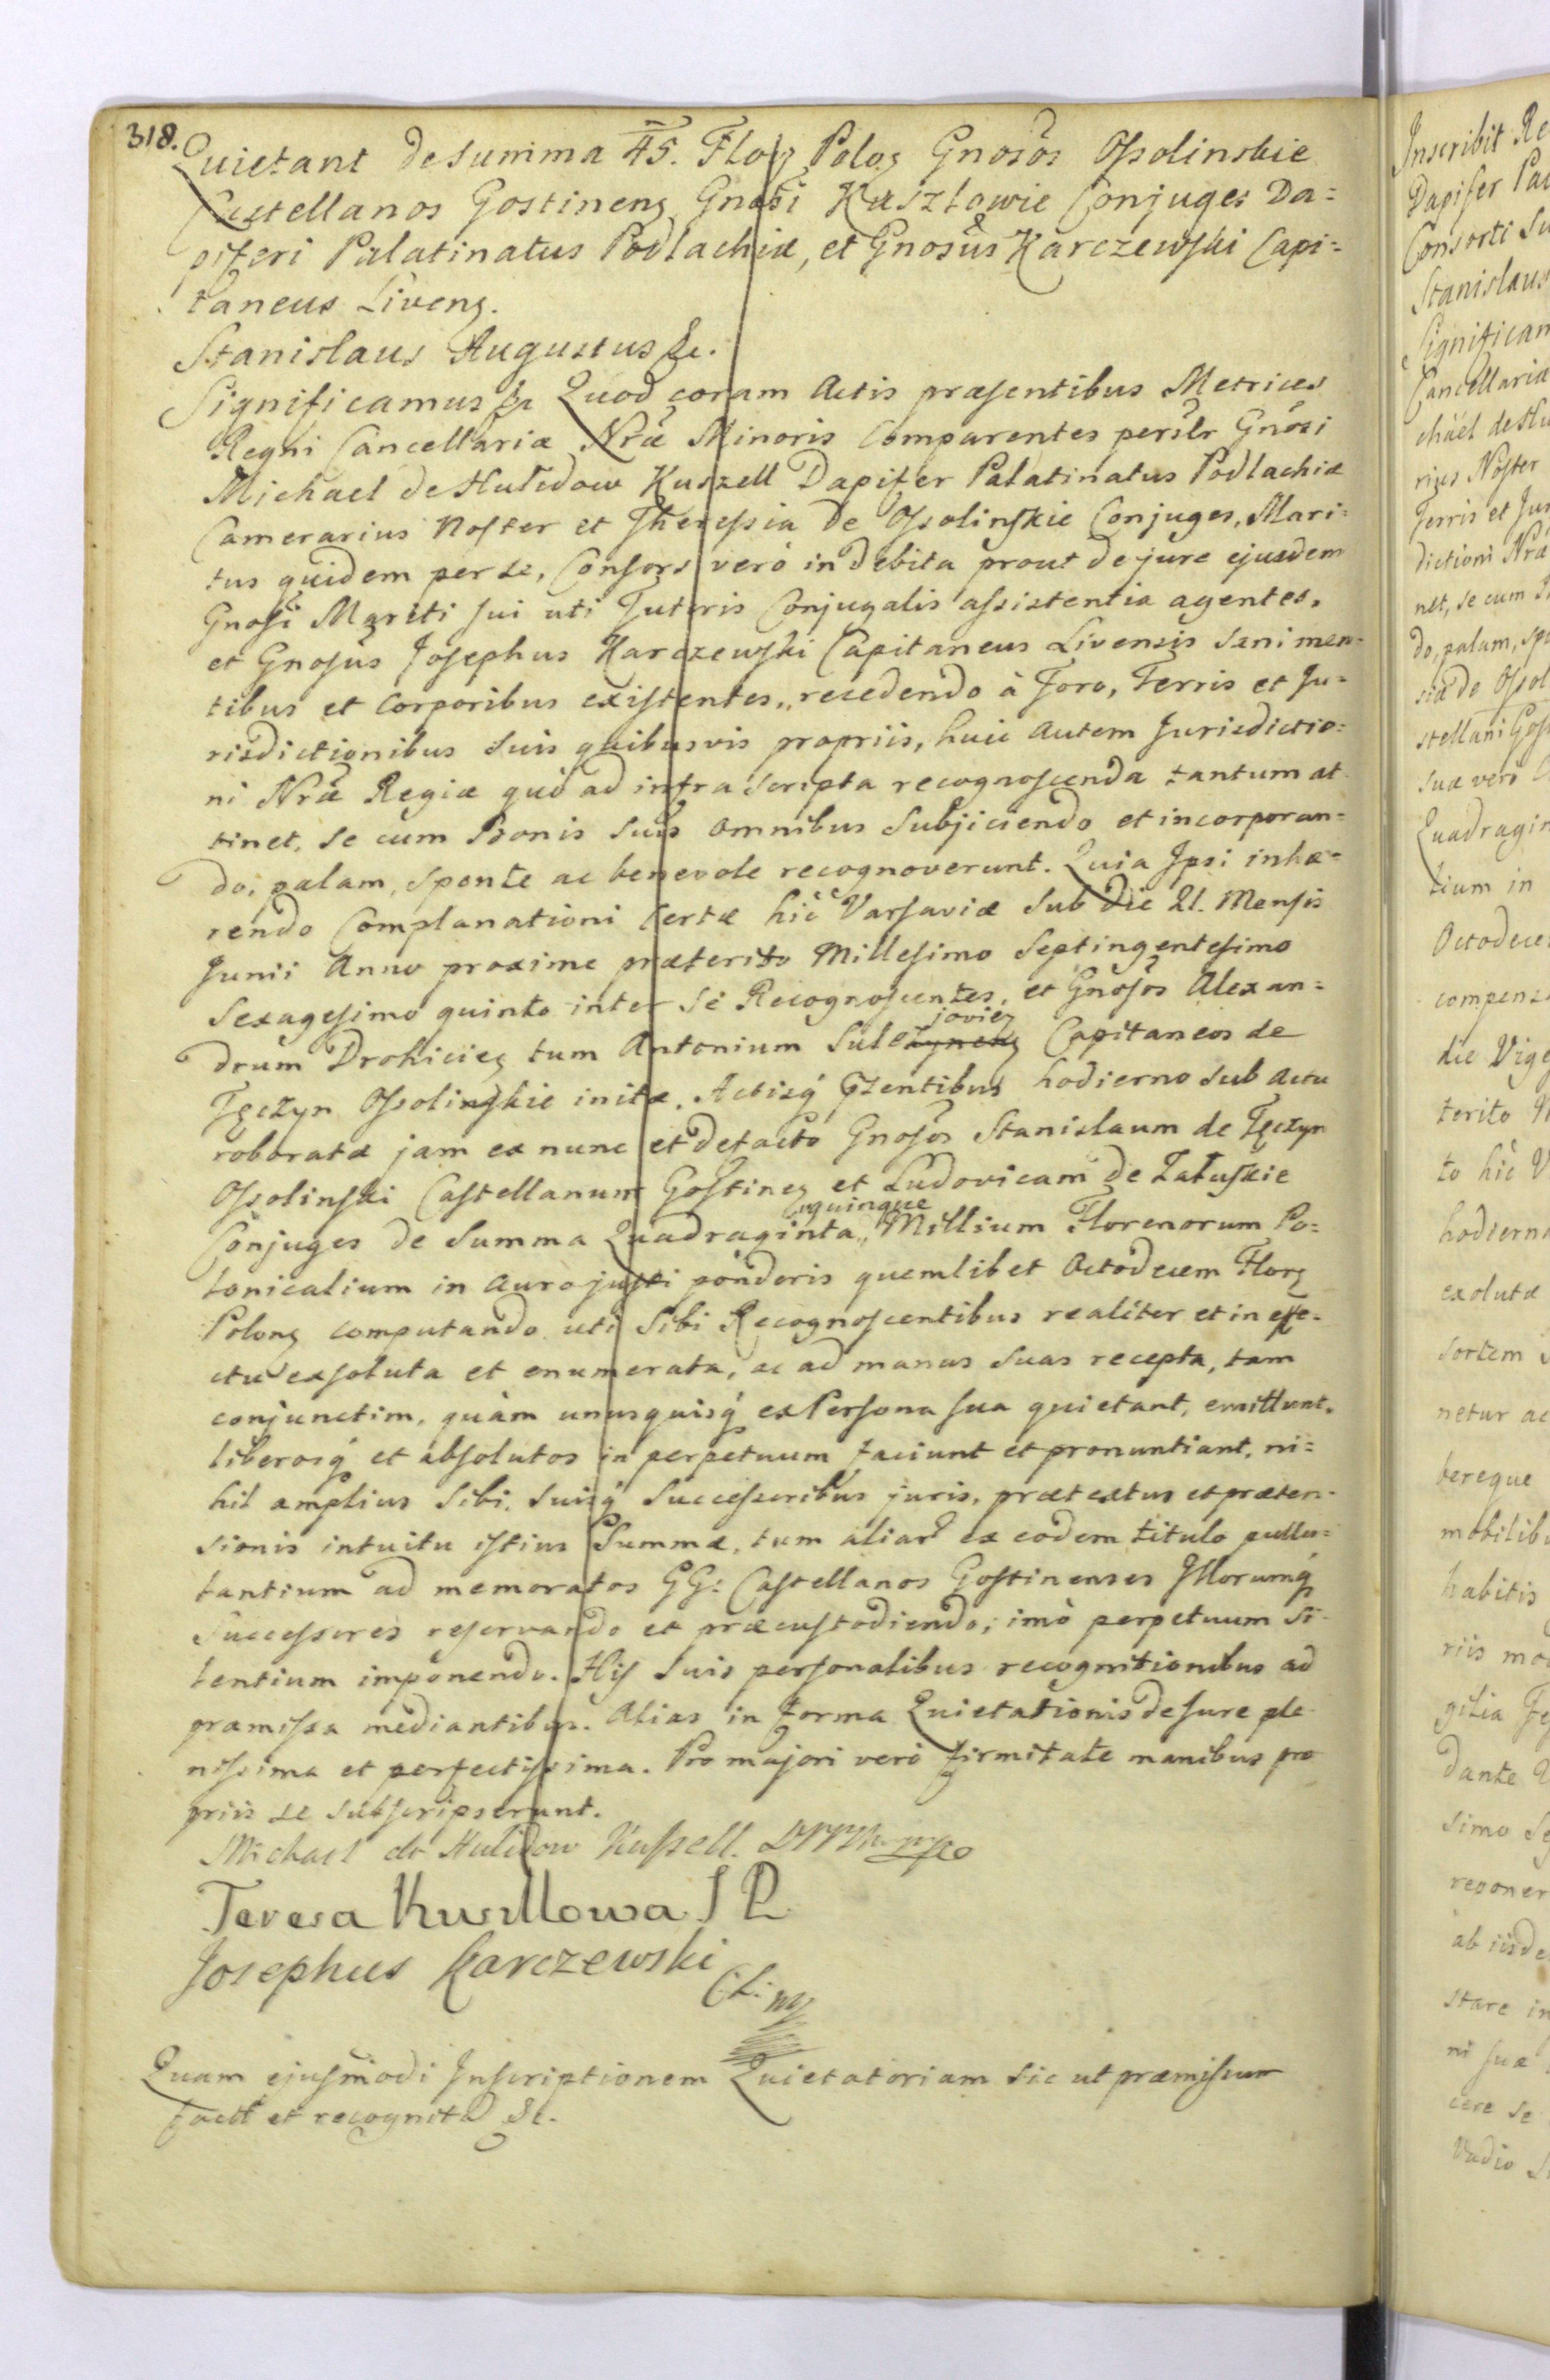 318.
Quietant de Summa 45. Flor Polog Gnosos Ossolinskie
Castellanos Gostineng Gnosi Kuszlowie Conjuges Da=
piferi Palatinatus Podlachiæ, et Gnosus Karczewski Capi=
taneus Liveng.
Stanislaus Augustus &c.
Significamus &c Quod coram Actis præsentibus Metrices
Regni Cancellariæ Nræ Minoris Comparentes persl'r Gnosi
Michael de Hulidow Kuszell Dapifer Palatinatus Podlachiæ
Camerarius Noster et Theressia de Ossolinskie Conjuges, Mari=
tus quidem per se, Consors verò in debita prout de jure ejusdem
Gnosi Mariti sui uti Tutoris Conjugalis assistentia agentes,
et Gnosus Josephus Karczewski Capitaneus Livensis Sani men=
tibus et Corporibus existentes, recedendo à Foro, Terris et Ju=
risdictionibus Suis quibusvis propriis, huic autem Jurisdictio=
ni Nræ Regiæ quò ad infra scripta recognoscenda tantum at
tinet, se cum Bonis Suis omnibus Subjiciendo et incorporan=
do, palam, sponte ac benevole recognoverunt. Quia Ipsi inhæ=
rendo Complanationi Certæ hic Varsaviæ Sub die 21. Mensis
Junii Anno proxime præterito Millesimo Septingentesimo
Sexagesimo quinto inter Se Recognoscentes, et Gnosos Alexan=
drum Drohicieg tum Antonium Sule joviez Capitaneos de
Tęczyn Ossolinskie initæ, Actisq pzentibus hodierno Sub Actu
roboratæ jam ex nunc et defacto Gnosos Stanislaum de Tęczyn
Ossolinski Castellanum Gostineg et Ludovicam de Załuskie
Conjuges de Summa Quadraginta quinque Millium Florenorum Po=
lonicalium in auro justi ponderis quemlibet Octodecem Florg
Polong computando uti Sibi Recognoscentibus realiter et in effe=
ctu exsoluta et enumerata, ac ad manus Suas recepta, tam
conjunctim, quàm unusquisq ex Persona sua quietant, emittunt,
liberosq et absolutos in perpetuum faciunt et pronuntiant, ni=
hil amplius Sibi, Suisq Successoribus juris, prætextus et præten=
sionis intuitu istius Summæ, tum aliar ex eodem titulo pullu=
lantium ad memoratos GG: Castellanos Gostinenses Illorumq
Successores reservando et præcustodiendo; imò perpetuum Si=
lentium imponendo. His Suis personalibus recognitionibus ad
præmissa mediantibus. Alias in forma Quietationis de Jure ple
nissima et perfectissima. Pro majori verò firmitate manibus pro
priis se Subscripserunt.
Michael de Hulidow Kussell.
Teresa Kuszllowa S P
Josephus Karczewski C: L: mp
Quam ejusmodi Inscriptionem Quietatoriam Sic ut præmissum
factt et recognitt &c.
Inscribit Re
Dapifer Pal
Consorti Su
Stanislaus
Significam
Cancellariæ
chäel de Hu
rius Noster
Terris et Jur
dictioni Nræ
net, se cum
do, palam, spo
sia de Ossol
stellani Gos
suæ verò
Quadragin
tium in
Octodece
compens
die Vige
terito
to hic V
hodierno
exolutæ
sortem
netur ac
bereque
mobilibu
habitis
riis mo
gilia Fe
dante
simo Se
reponer
ab iisde
stare in
ni suæ
cere se
Vadio